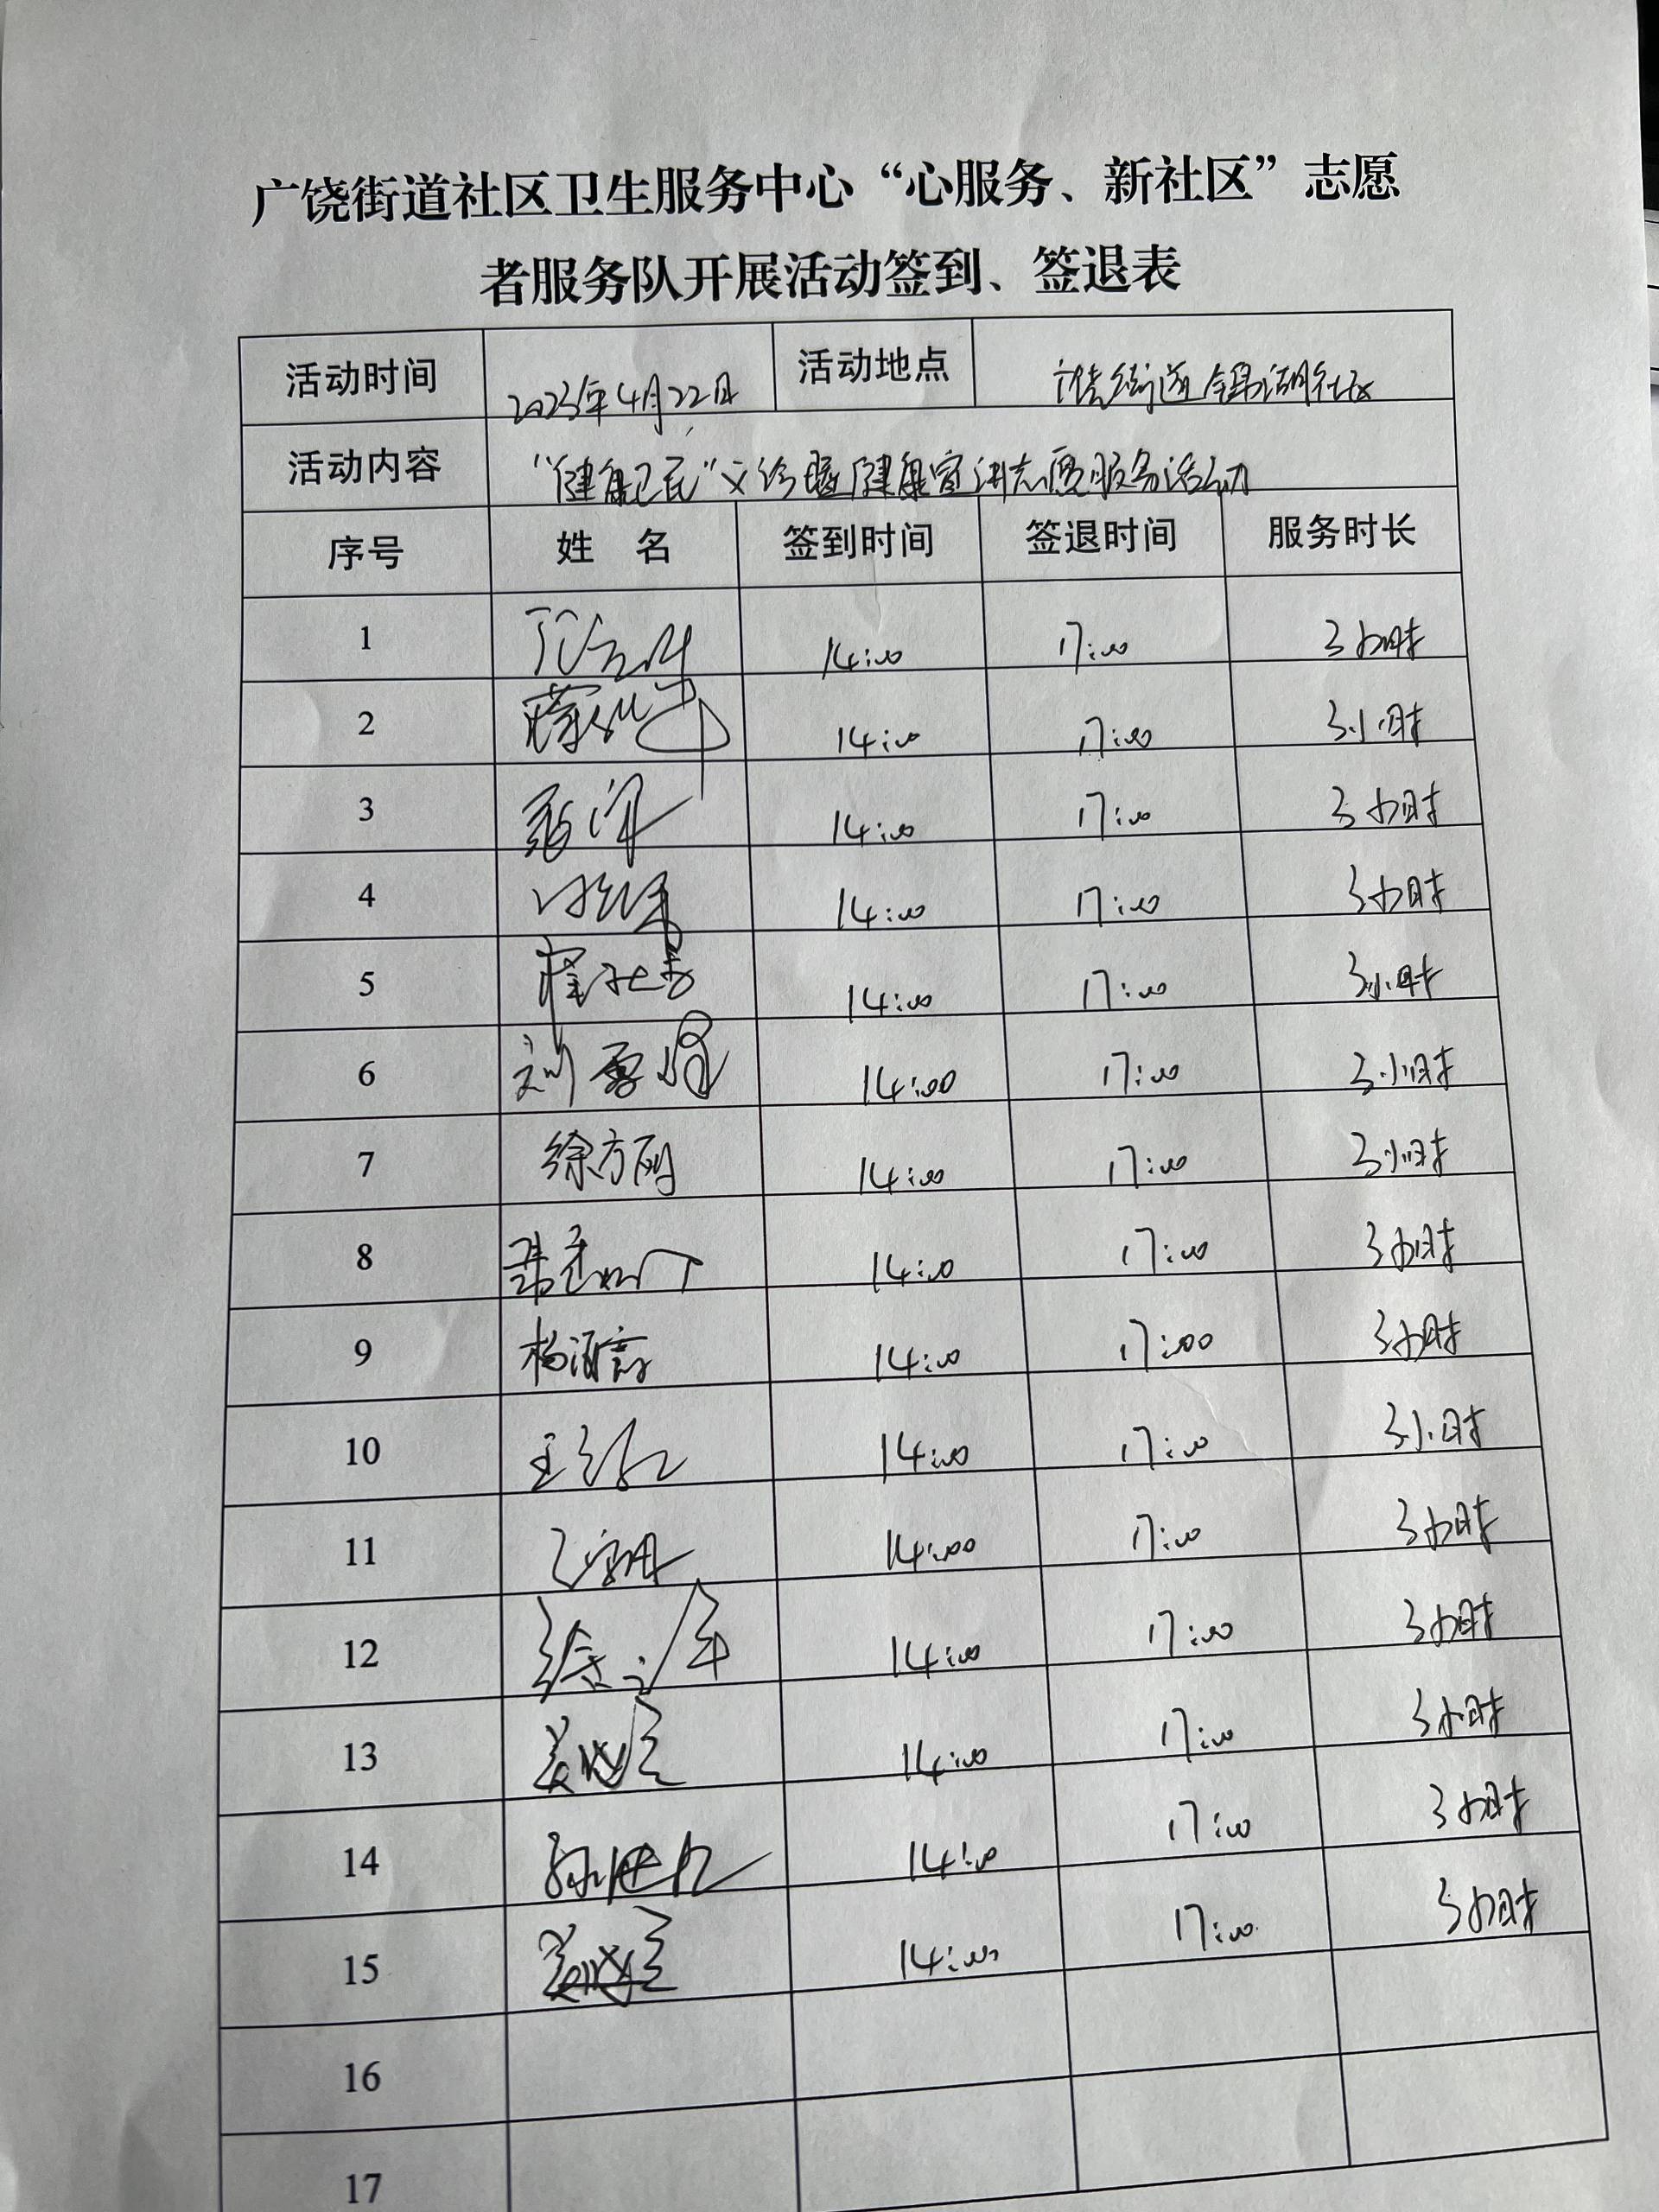 广饶街道社区卫生服务中心“心服务、新社区”志愿
者服务队开展活动签到、签退表
活动时间 2023年4月22日 活动地点 广饶街道锦湖社区
活动内容 “健康卫民”义诊暨健康宣讲志愿服务活动
序号 姓 名 签到时间 签退时间 服务时长
1 14:00 17:00 3小时
2 14:00 17:00 3小时
3 14:00 17:00 3小时
4 14:00 17:00 3小时
5 14:00 17:00 3小时
6 刘 14:00 17:00 3小时
7 徐方 14:00 17:00 3小时
8 14:00 17:00 3小时
9 杨 14:00 17:00 3小时
10 王 14:00 17:00 3小时
11 14:00 17:00 3小时
12 徐 14:00 17:00 3小时
13 14:00 17:00 3小时
14 14:00 17:00 3小时
15 14:00 17:00 3小时
16
17